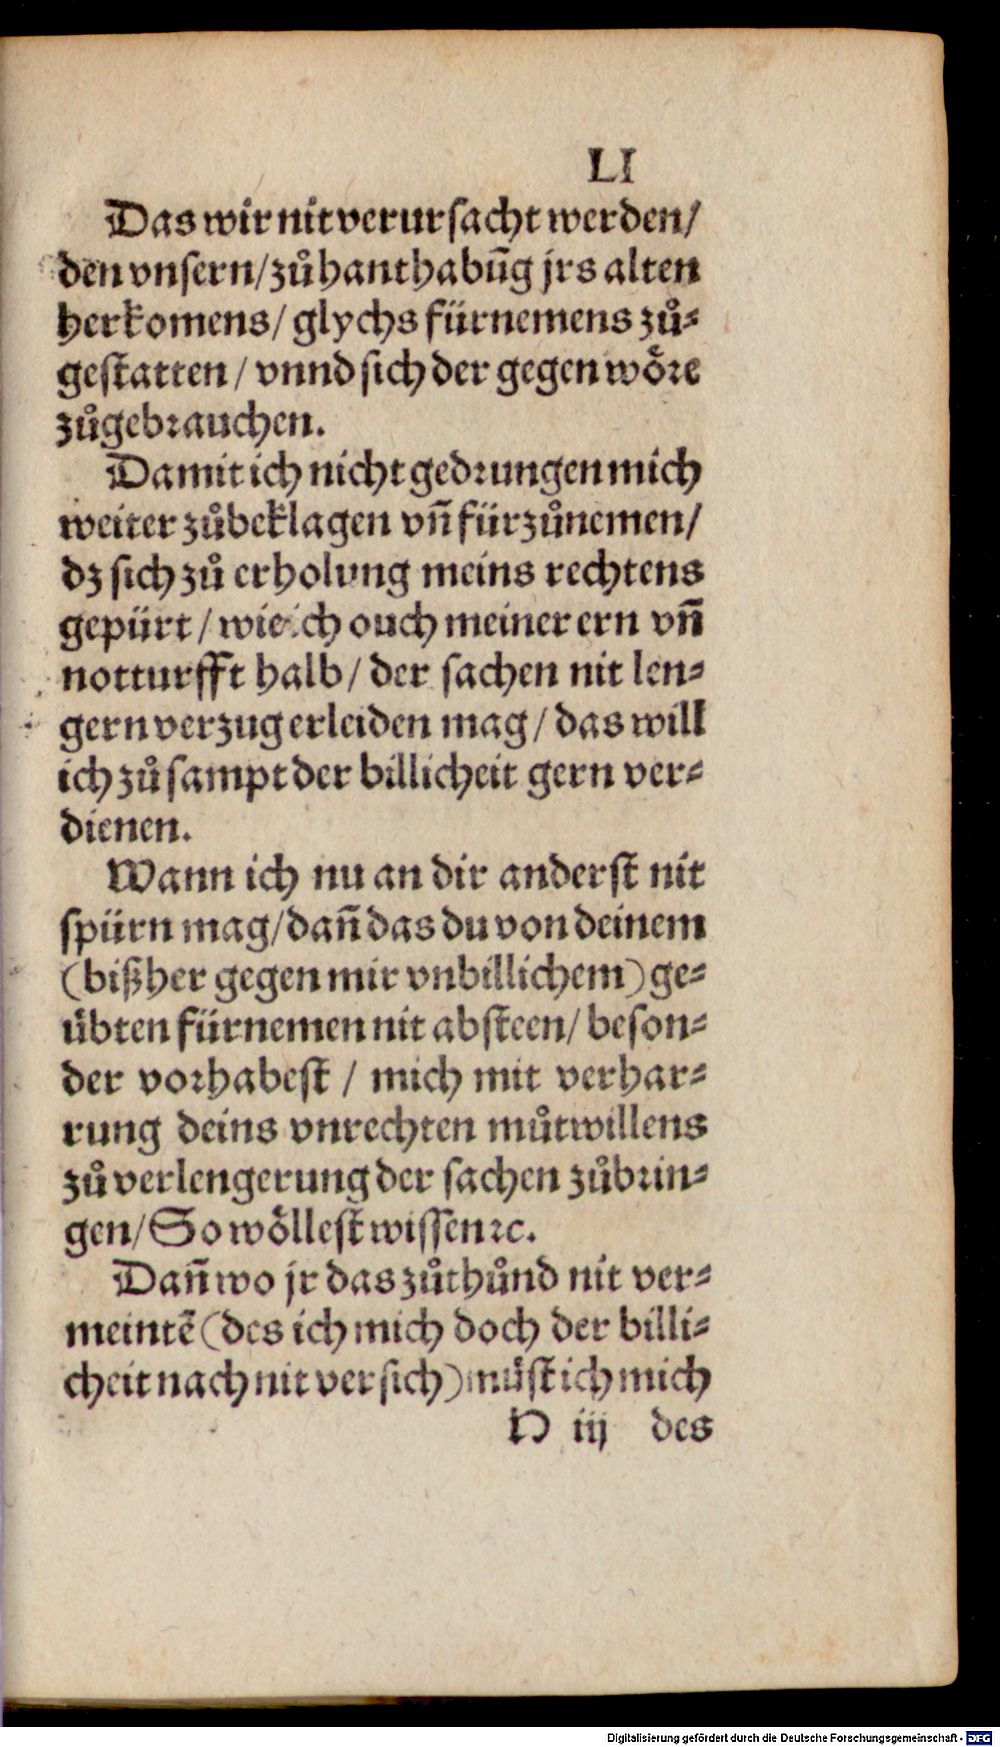 LI
Das wir nit verursacht werden/
den vnsern/zůhanthabūg jrs alten
herkomens/ glychs fürnemens zů⸗
gestatten/ vnnd sich der gegenwöre
zůgebrauchen.
Damit ich nicht gedrungen mich
weiter zůbeklagen vn̄ fürzůnemen/
dz sich zů erholung meins rechtens
gepürt/ wie ich ouch meiner ern vn̄
notturfft halb/ der sachen nit len⸗
gern verzug erleiden mag/ das will
ich zů sampt der billicheit gern ver⸗
dienen.
Wann ich nu an dir anderst nit
spürn mag/dan̄ das du von deinem
(bißher gegen mir vnbillichem) ge⸗
übten fürnemen nit absteen/ beson⸗
der vorhabest/ mich mit verhar⸗
rung deins vnrechten můtwillens
zů verlengerung der sachen zůbrin⸗
gen/So wöllest wissen ꝛc.
Dan̄ wo jr das zůthůnd nit ver⸗
meintē (des ich mich doch der billi⸗
cheit nach nit versich) müst ich mich
N iij des
Digitalisierung gefördert durch die Deutsche Forschungsgemeinschaft - DFG